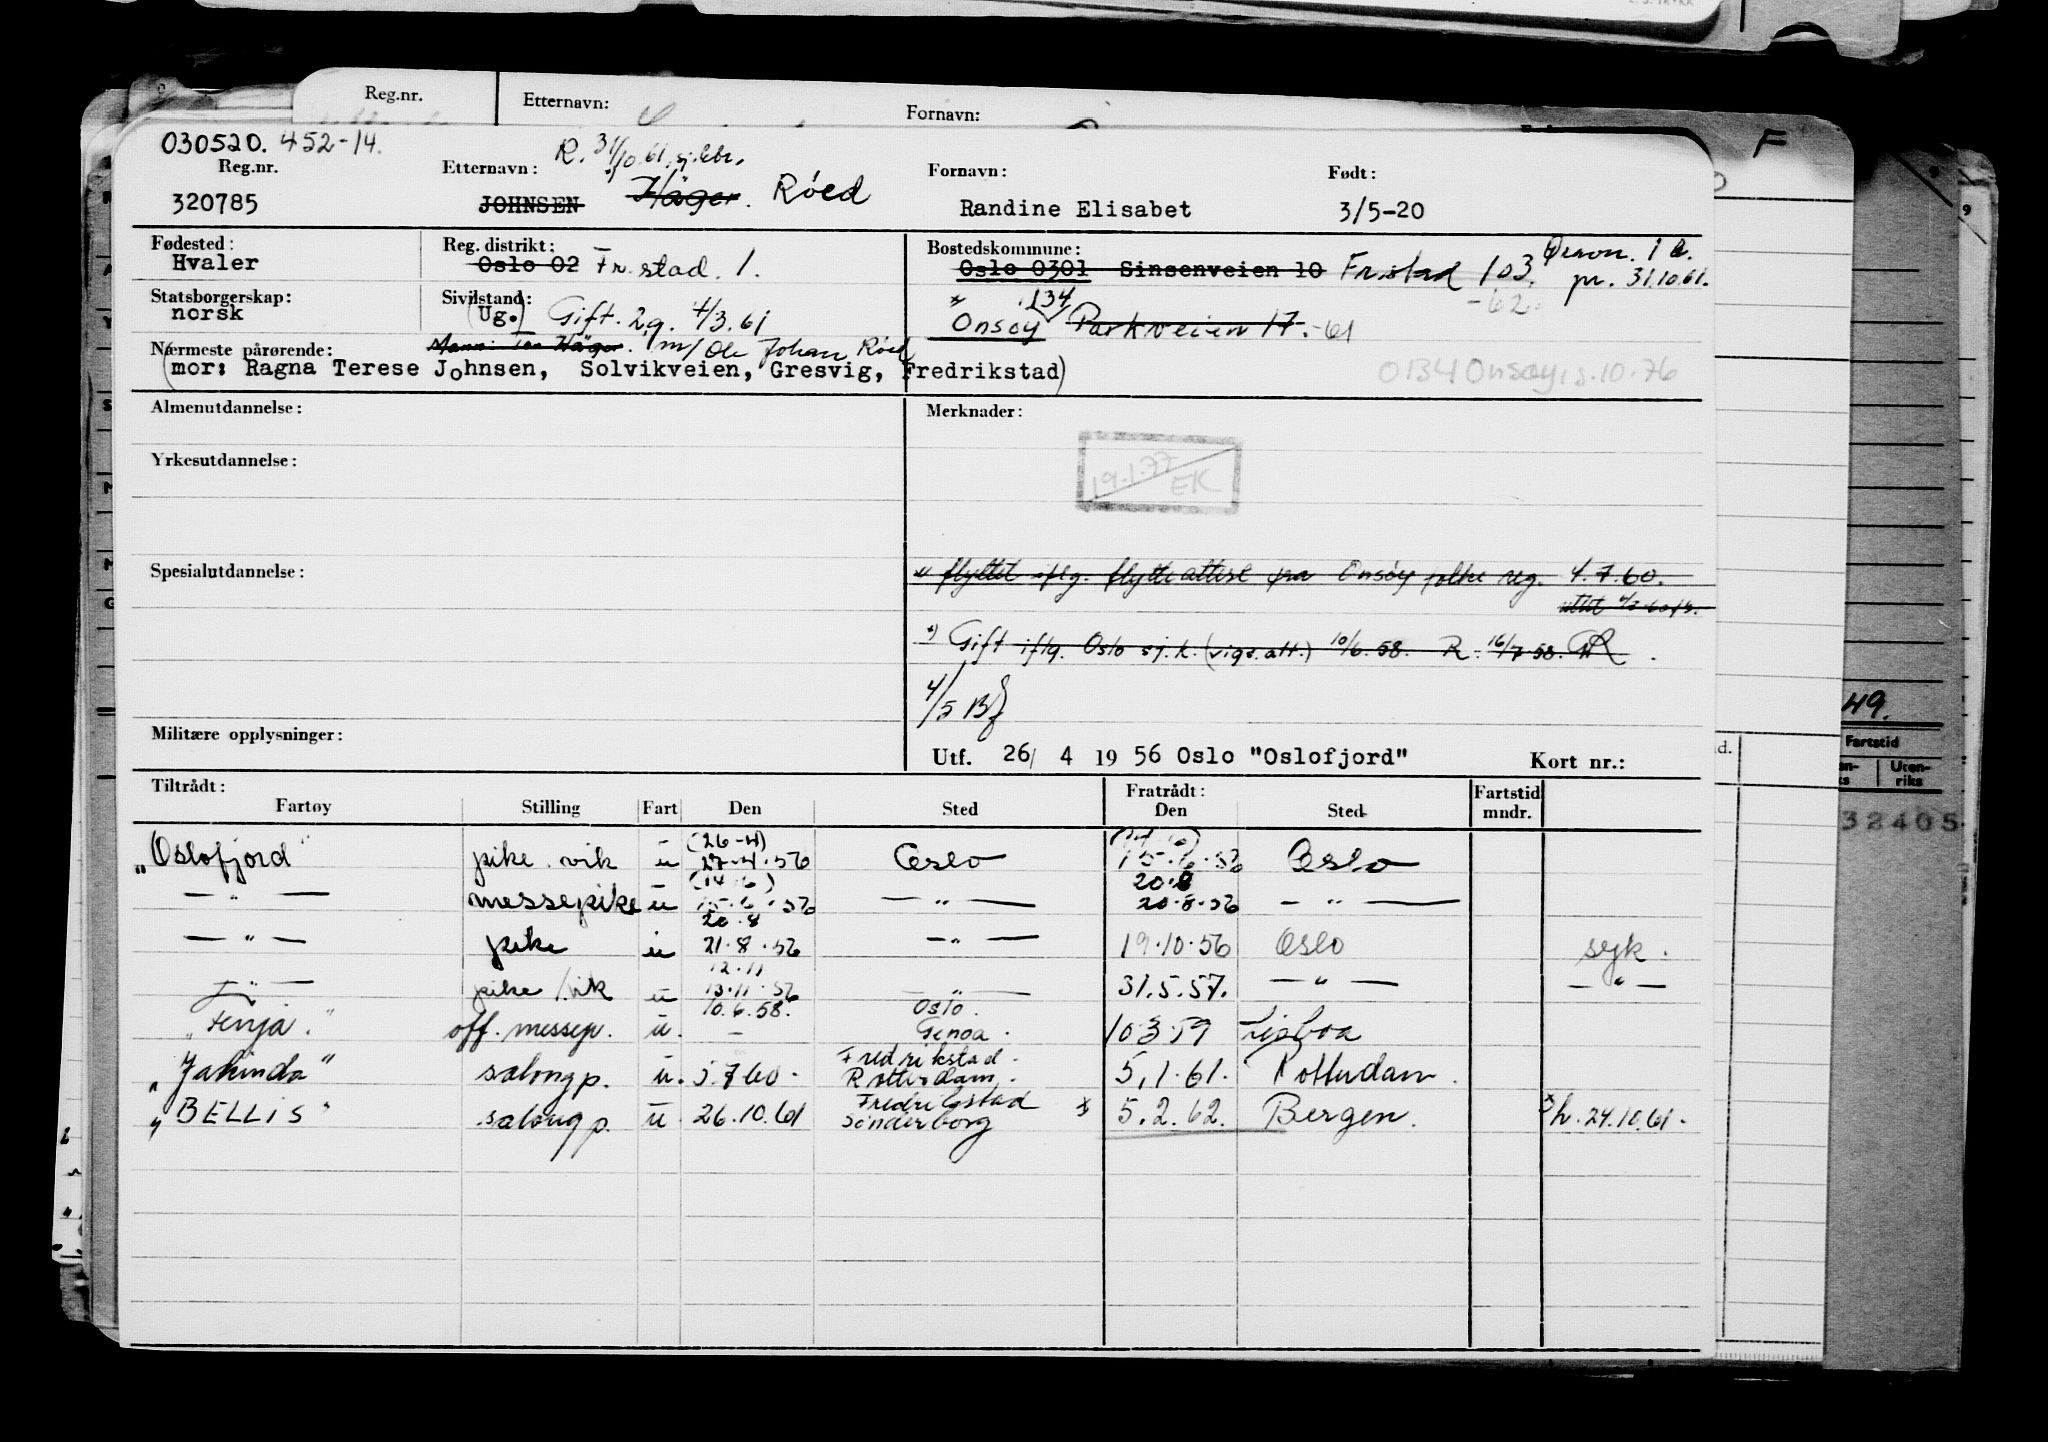 Reg.nr.
Etternavn:
Fornavn:
F
030520. 452-14.
R. 31/10.61 sj.
Reg.nr.
Etternavn:
Fornavn:
Født:
320785
JOHNSEN Häger. Röed
Randine Elisabet
3/5-20
Fødested:
Hvaler
Reg. distrikt:
Oslo 02 Fr.stad. 1.
Bostedskommune:
Oslo 0301 Sinsenveien 10 Fr.stad 103.
pr. 31.10.61.
-62.
Statsborgerskap:
norsk
Sivilstand:
(Ug.) Gift. 2.g. 4/3.61
134
Onsøy Parkveien 17. -61
Nærmeste pårørende:
m/ Ole Johan Röed
(mor: Ragna Terese Johnsen, Solvikveien, Gresvig, Fredrikstad)
0134 Onsøy, 10.76
Almenutdannelse:
Merknader:
Yrkesutdannelse:
19.1.77 EK
Spesialutdannelse:
flyttet iflg. flytteattest fra Onsøy folke reg. 4.7.60.
Gift iflg. Oslo sj.k. (vigs.att.) 10/6.58. R. 16/7.58.
4/5 Bf
Militære opplysninger:
Utf. 26/ 4 19 56 Oslo "Oslofjord"
Kort nr.:
Tiltrådt:
Fratrådt:
Fartøy Stilling Fart Den Sted Den Sted Fartstid mndr.
(26-4)
"Oslofjord" pike. vik u 27-4.56 Oslo 15.6.56 Oslo
(14.6) 20.8
— " — messepike u 15.6.56 — " — 20.8.56 — " —
20.8
— " — pike u 21.8.56 — " — 19.10.56 Oslo syk.
12.11
— " — pike/vik u 13.11.56 — " — 31.5.57. — " — — " —
10.6.58. Oslo.
"Fenja." off. messep. u. — Genoa. 10.3.59 Lisboa
Fredrikstad.
"Jakinda" salongp. u. 5.7.60. Rotterdam. 5.1.61. Rotterdam.
Fredrikstad
"BELLIS" salongp. u 26.10.61 Sønderborg x 5.2.62. Bergen. x h. 24.10.61.
49.
Fartstid
Uten-
riks
32405